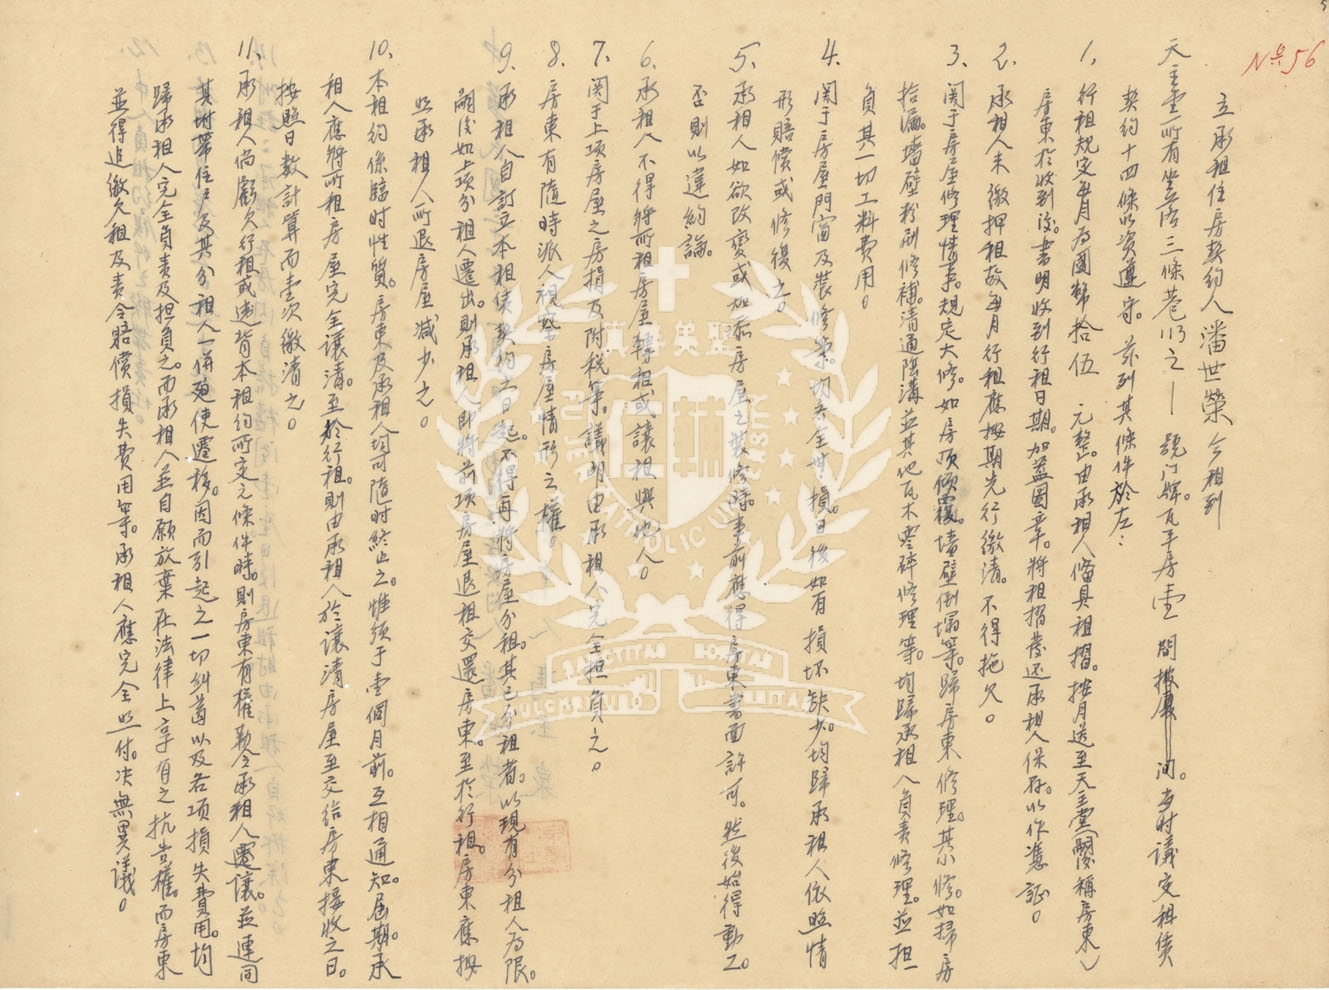 No 56
立承租住房契約人潘世榮今租到
天主堂所有坐落三條巷113之一號門牌。瓦平房壹間披廈間。當時議定租賃
契約十四條以資遵守。茲列其條件於左：
1、行租規定每月為國幣拾伍元整。由承租人俻具租摺。按月送至天主堂(後稱房東)
房東於收到後。書明收到行租日期。加蓋圖章。將租摺發还承租人保存。以作憑証。
2、承租人未繳押租故每月行租應按期先行繳清。不得拖欠。
3、関于房屋修理情事。規定大修。如房頂傾覆。墻壁倒塌等。歸房東修理。其小修。如掃房
拾漏。墻壁粉刷修補。清通陰溝並其他瓦木零碎修理等。均歸承租人負責修理。並担
負其一切工料費用。
4、関于房屋門窗及裝修等。均齐全無損。日後如有損坏缺少。均歸承租人依照情
形賠償或修復之。
5、承租人如欲改變或加添房屋之裝修時。事前應得房東書面許可。然後始得動工。
否則以違約論。
6、承租人不得將所租房屋轉租或讓租與他人。
7、関于上項房屋之房損及附税等。議明由承租人完全担負之。
8、房東有隨時派人視察房屋情形之權。
9、承租人自訂立本租賃契約之日起。不得再將房屋分租。其已分租者。以現有分租人為限。
嗣後如上項分租人遷出。則承租人即將前項房屋退租交還房東。至於行租。房東應按
照承租人所退房屋減少之。
10、本租約係臨时性質。房東及承租人均可隨时終止之。惟須于壹個月前。互相通知。屆期。承
租人應將所租房屋完全讓清。至於行租。則由承租人於讓清房屋至交给房東接收之日。
按照日數計算而壹次繳清之。
11、承租人倘虧欠行租或違背本租約所定之條件時。則房東有權勒令承租人遷讓。並連同
其附帶住户及其分租人一併廹使遷移。因而引起之一切糾葛以及各項損失費用。均
歸承租人完全負责及担負之。而承租人並自願放棄在法律上享有之抗告權。而房東
並得追繳欠租及责令賠償損失費用等。承租人應完全照付。决無異議。